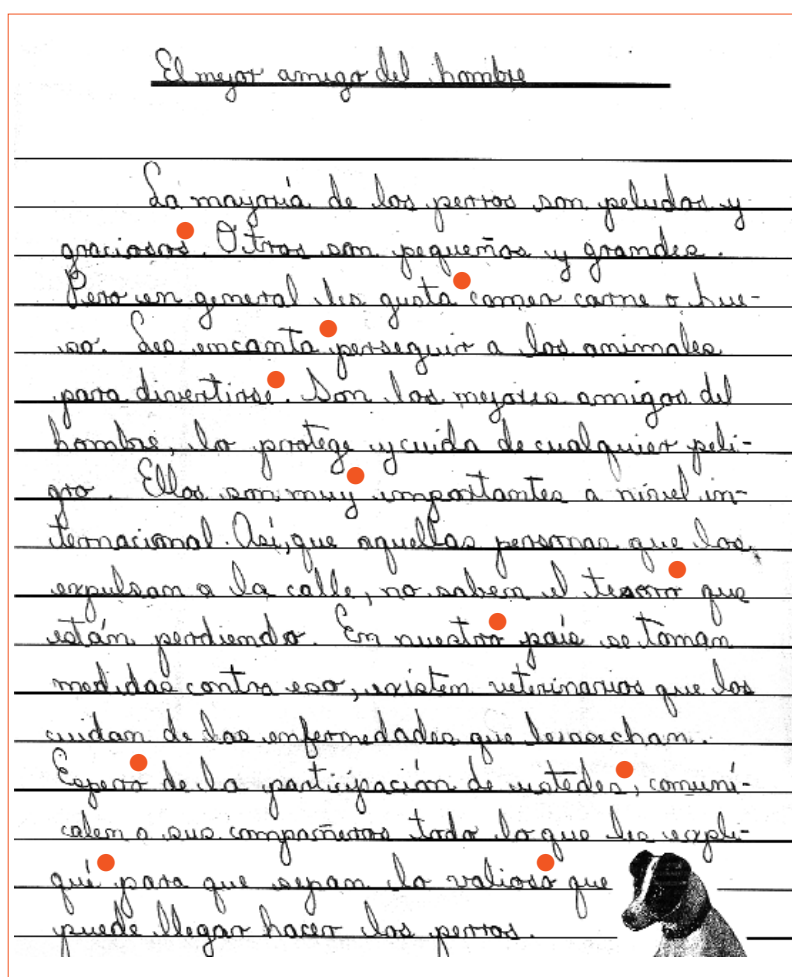 El mejor amigo del hombre
La mayoría de los perros son peludos y
graciosos. Otros son pequeños y grandes.
Pero en general les gusta comer carne o hue-
so. Les encanta perseguir a los animales
para divertirse. Son los mejores amigos del
hombre, lo protege y cuida de cualquier peli-
gro. Ellos son muy importantes a nivel in-
ternacional. Así, que aquellas personas que los
expulsan a la calle, no saben el tesoro que
están perdiendo. En nuestro país se toman
medidas contra eso, existen veterinarios que los
cuidan de las enfermedades que lesasechan.
Espero de la participación de ustedes, comuní-
calen a sus compañeros todo lo que les expli-
qué para que sepan lo valioso que
puede llegar hacer los perros.